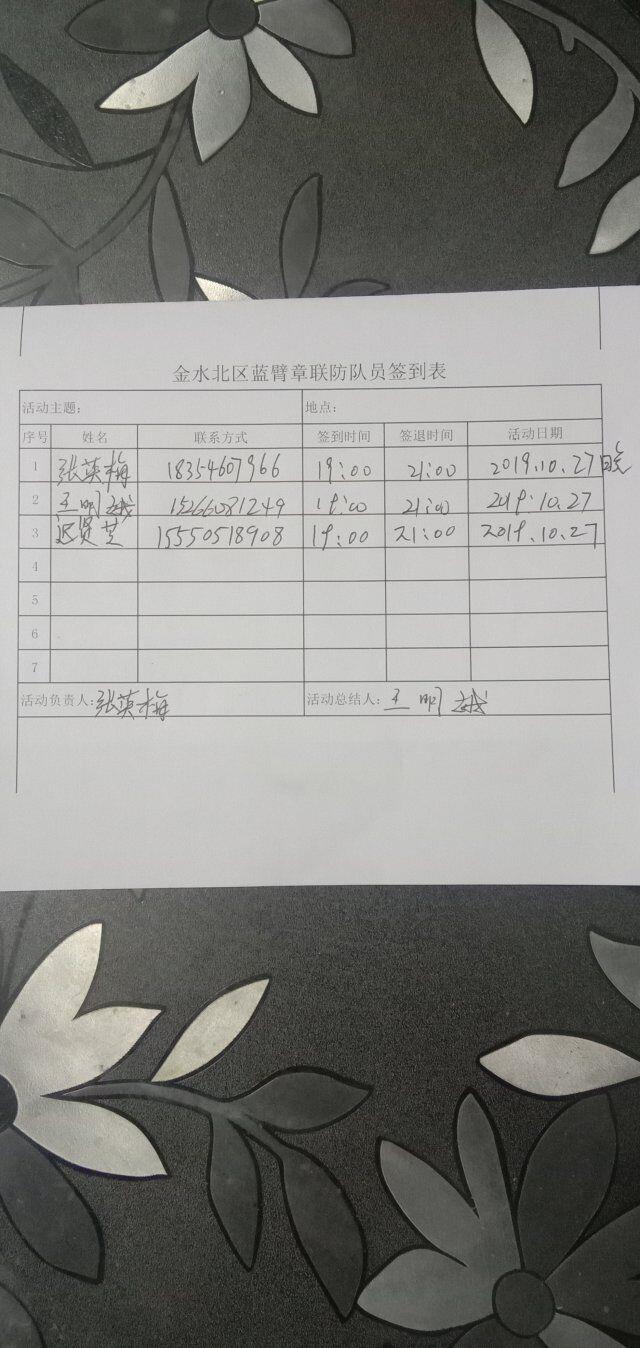 金水北区蓝臂章联防队员签到表
活动主题: 地点:
序号 姓名 联系方式 签到时间 签退时间 活动日期
1 张英梅 18354607966 19:00 21:00 2019.10.27晚
2 王明越 15266081249 19:00 21:00 2019.10.27
3 迟贤芝 15550518908 19:00 21:00 2019.10.27
4
5
6
7
活动负责人:张英梅 活动总结人:王明越